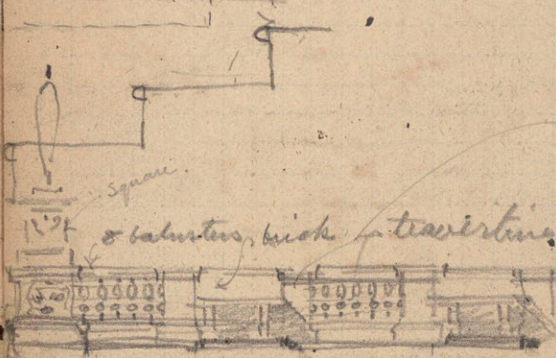 square
8 balusters, brick travertine